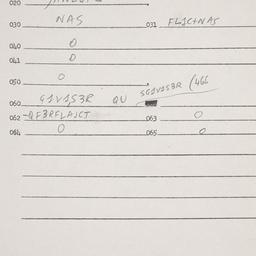 020
030 NAS 031 FL1C+NAS
040 0
041 0
050 0
060 G1V1S3R QU SG1V1S3R (466
062 -QF3RFLAJCT 063 0
064 0 065 0